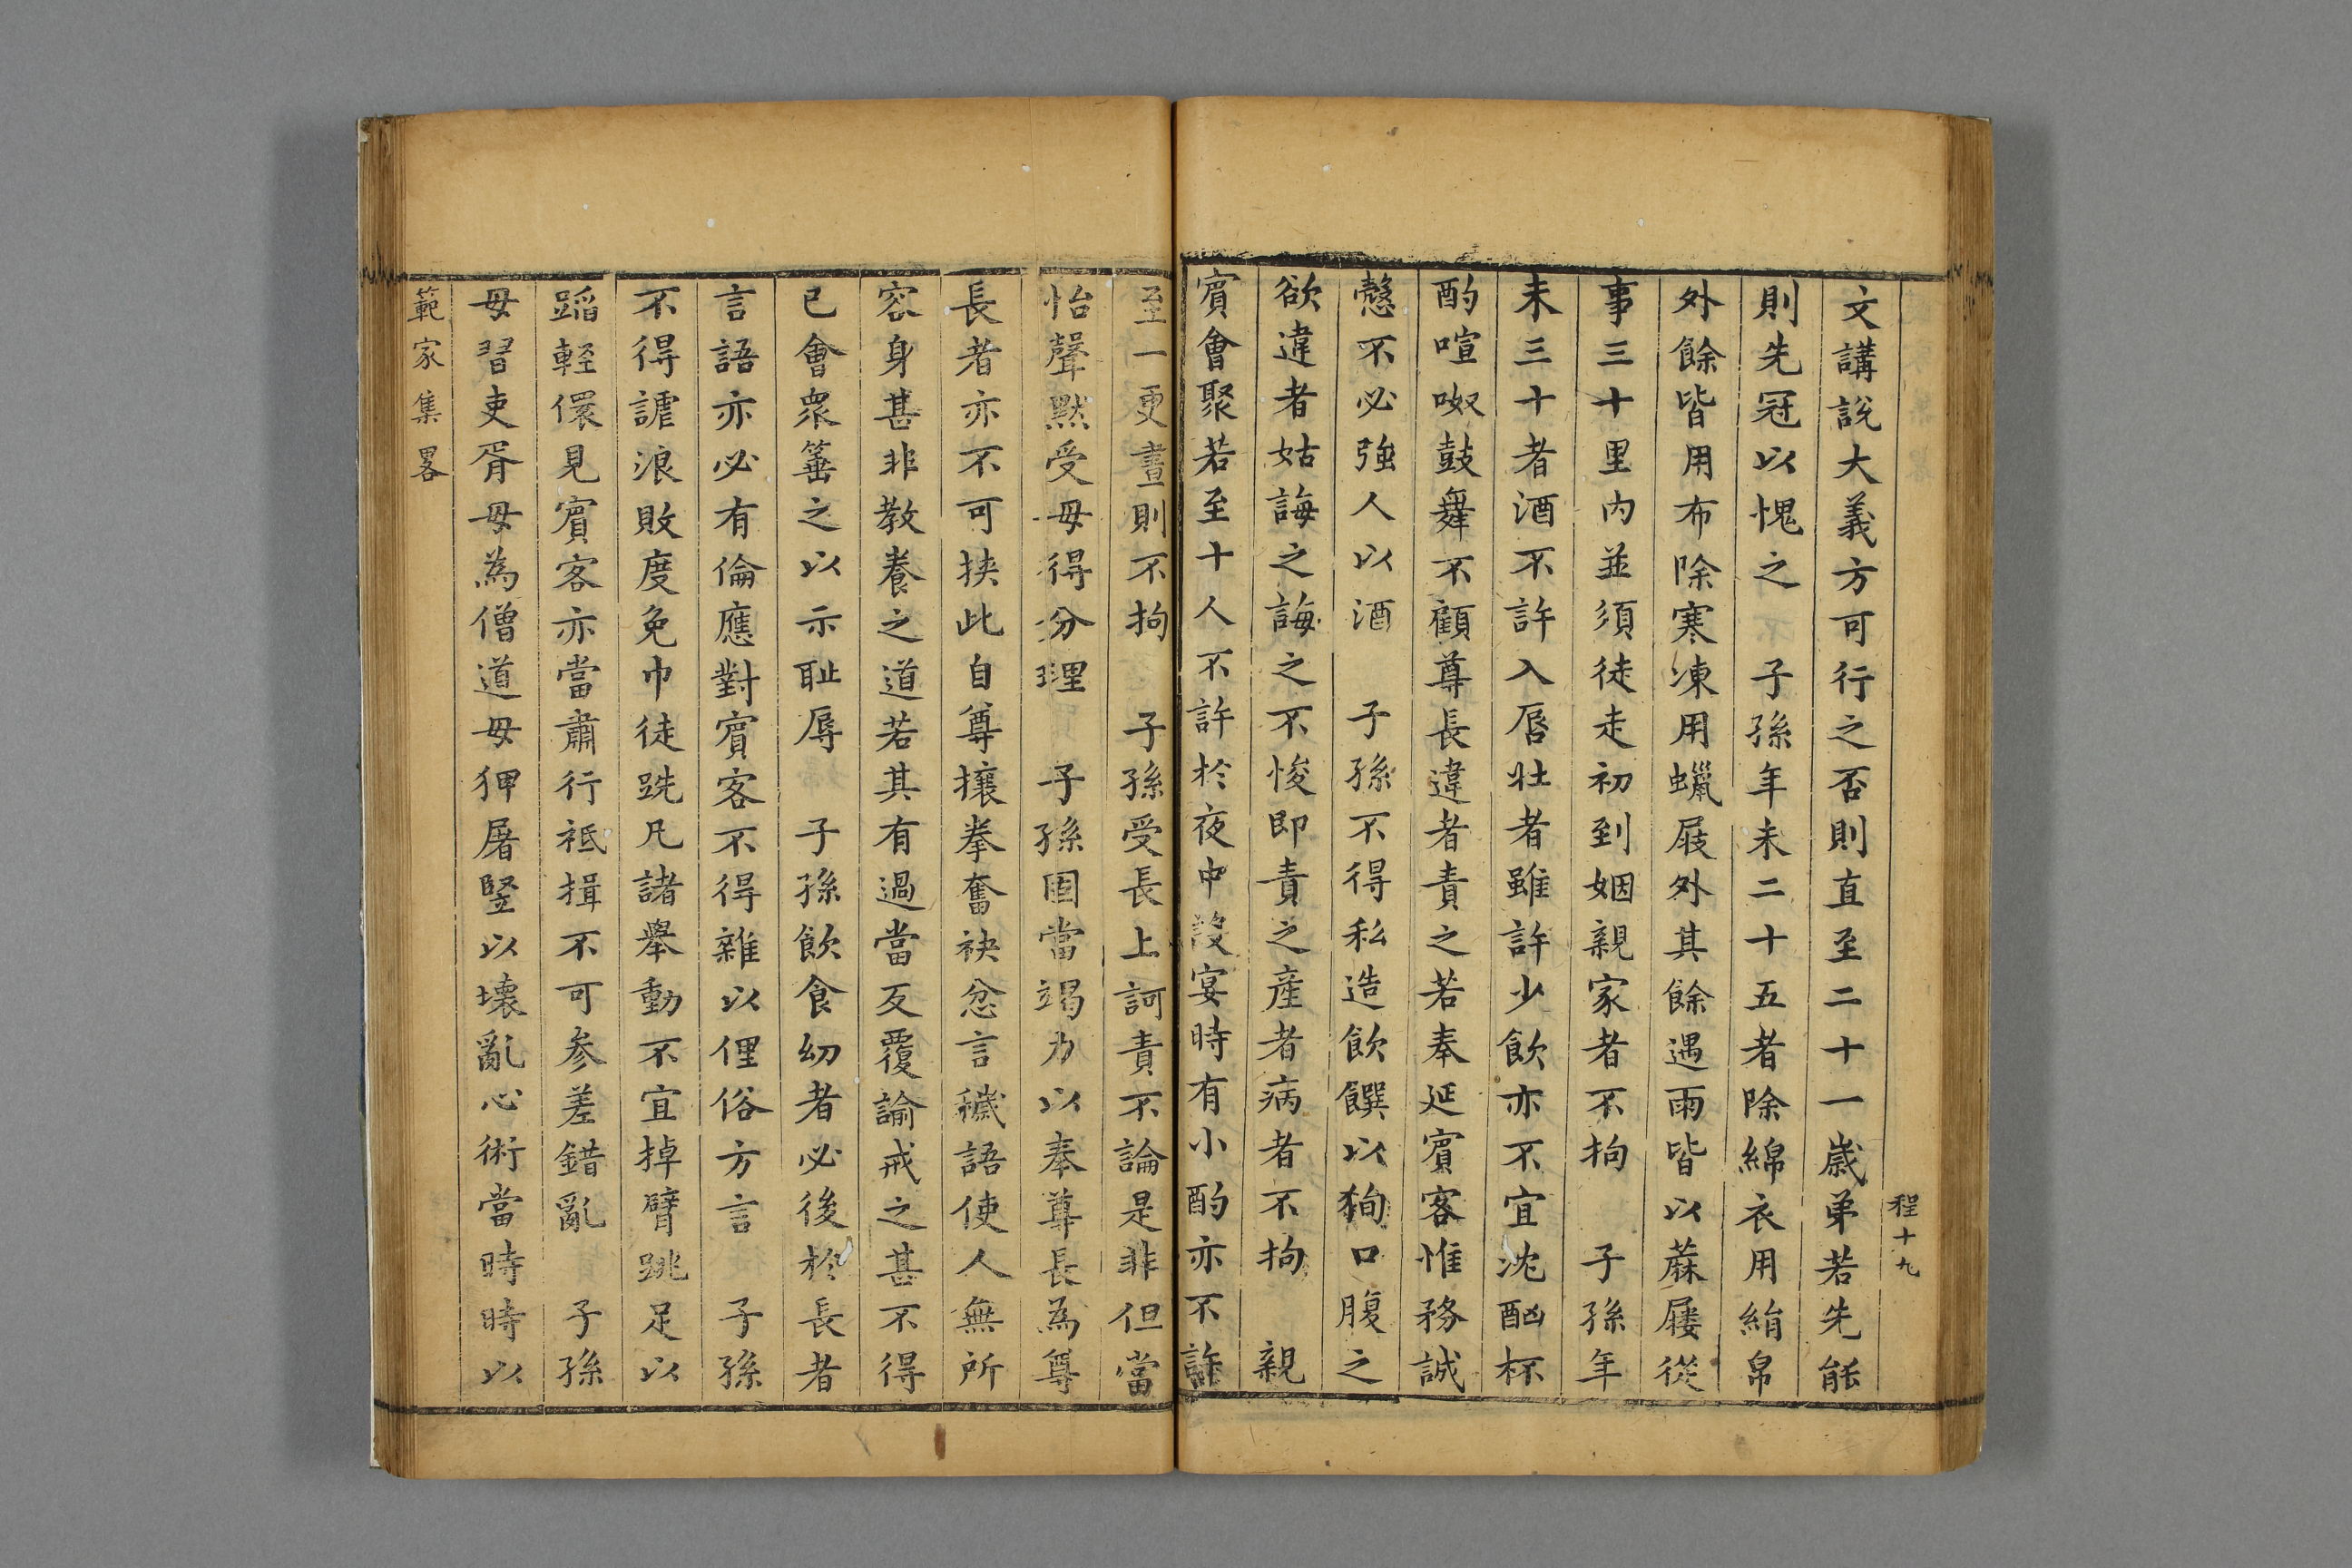 程十九
文講說大義方可行之否則直至二十一歲弟若先能
則先冠以愧之　子孫年未二十五者除綿衣用絹帛
外餘皆用布除寒凍用蠟屐外其餘遇雨皆以蔴屨從
事三十里内並須徒走初到姻親家者不拘　子孫年
未三十者酒不許入唇壯者雖許少飲亦不宜沈酗杯
酌喧呶鼓舞不顧尊長違者責之若奉延賓客惟務誠
慤不必強人以酒　子孫不得私造飲饌以狥口腹之
欲違者姑誨之誨之不悛即責之產者病者不拘　親
賓會聚若至十人不許於夜中設宴時有小酌亦不許
至一更晝則不拘　子孫受長上訶責不論是非但當
怡聲黙受毋得分理　子孫固當竭力以奉尊長為尊
長者亦不可挾此自尊攘拳奮袂忿言穢語使人無所
容身甚非教養之道若其有過當反覆諭戒之甚不得
已會衆箠之以示耻辱　子孫飲食幼者必後於長者
言語亦必有倫應對賓客不得雜以俚俗方言　子孫
不得謔浪敗度免巾徒跣凡諸舉動不宜掉臂跳足以
蹈輕儇見賓客亦當肅行祗揖不可参差錯亂　子孫
毋習吏胥毋為僧道毋狎屠竪以壊亂心術當時時以
範家集畧